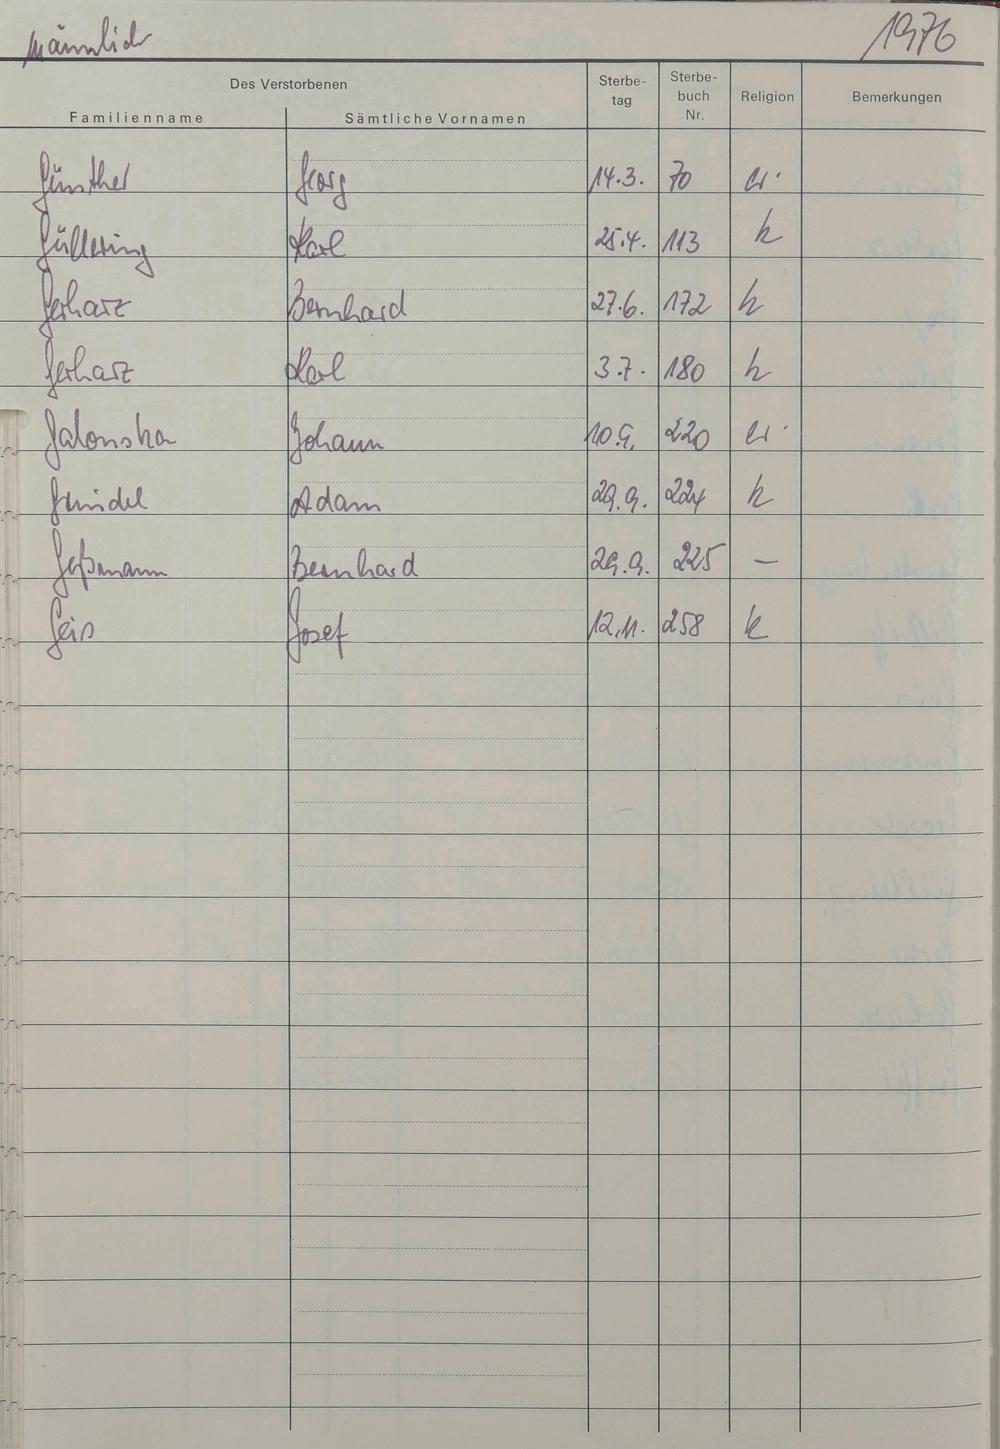 männlich 1976
Des Verstorbenen
Familienname Sämtliche Vornamen Sterbe-tag Sterbe-buch Nr. Religion Bemerkungen
Günther Georg 14.3. 70 ev.
Güllering Karl 25.4. 113 k
Gerharz Bernhard 27.6. 172 k
Gerharz Karl 3.7. 180 k
Galonska Johann 10.9. 220 ev.
Adam 29.9. 224 k
Geßmann Bernhard 29.9. 225 —
Geis Josef 12.11. 258 k